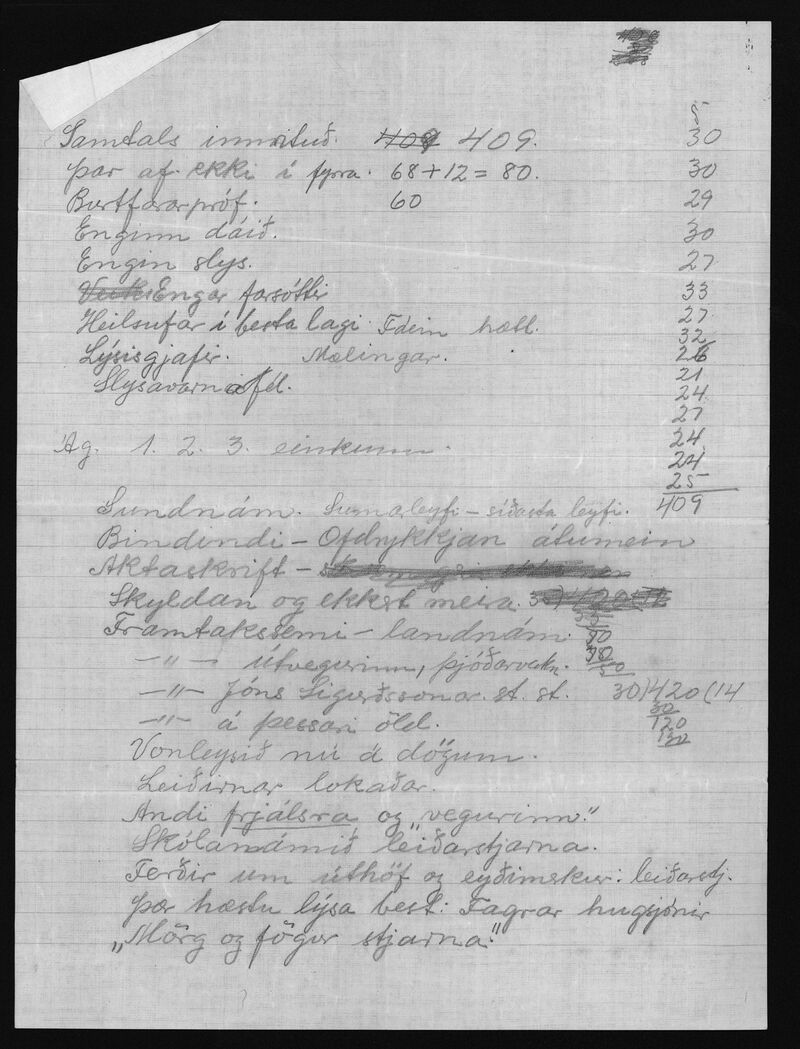 5
Samtals innrituð. 409 409. 30
Þar af ekki í fyrra. 68+12=80. 30
Burtfararpróf. 60 29
Enginn dáið. 30
Engin slys. 27
Engar farsóttir 33
Heilsufar í besta lagi Fáein hætt. 27
32
Lýsisgjafir. Mælingar. 26
21
Slysavarnafél. 24
27
Ag. 1. 2. 3. einkunn. 24
24
25
Sundnám. Sumarleyfi – síðasta leyfi. 409
Bindindi – Ofdrykkjan átumein
Aktaskrift –
Skyldan og ekkst meira
Framtakssemi – landnám.
–"– útvegurinn, þjóðarvakn.
–"– Jóns Sigurðssonar. st. st. 30)420(14
30
–"– á þessari öld. 120
120
Vonleysið nú á dögum.
Leiðirnar lokaðar.
Andi frjálsra og „vegurinn".
Skólanámið leiðarstjarna.
Ferðir um úthöf og eyðimerkur: leiðarstj.
Þær hæstu lýsa best: Fagrar hugsjónir
„Mörg og fögur stjarna".